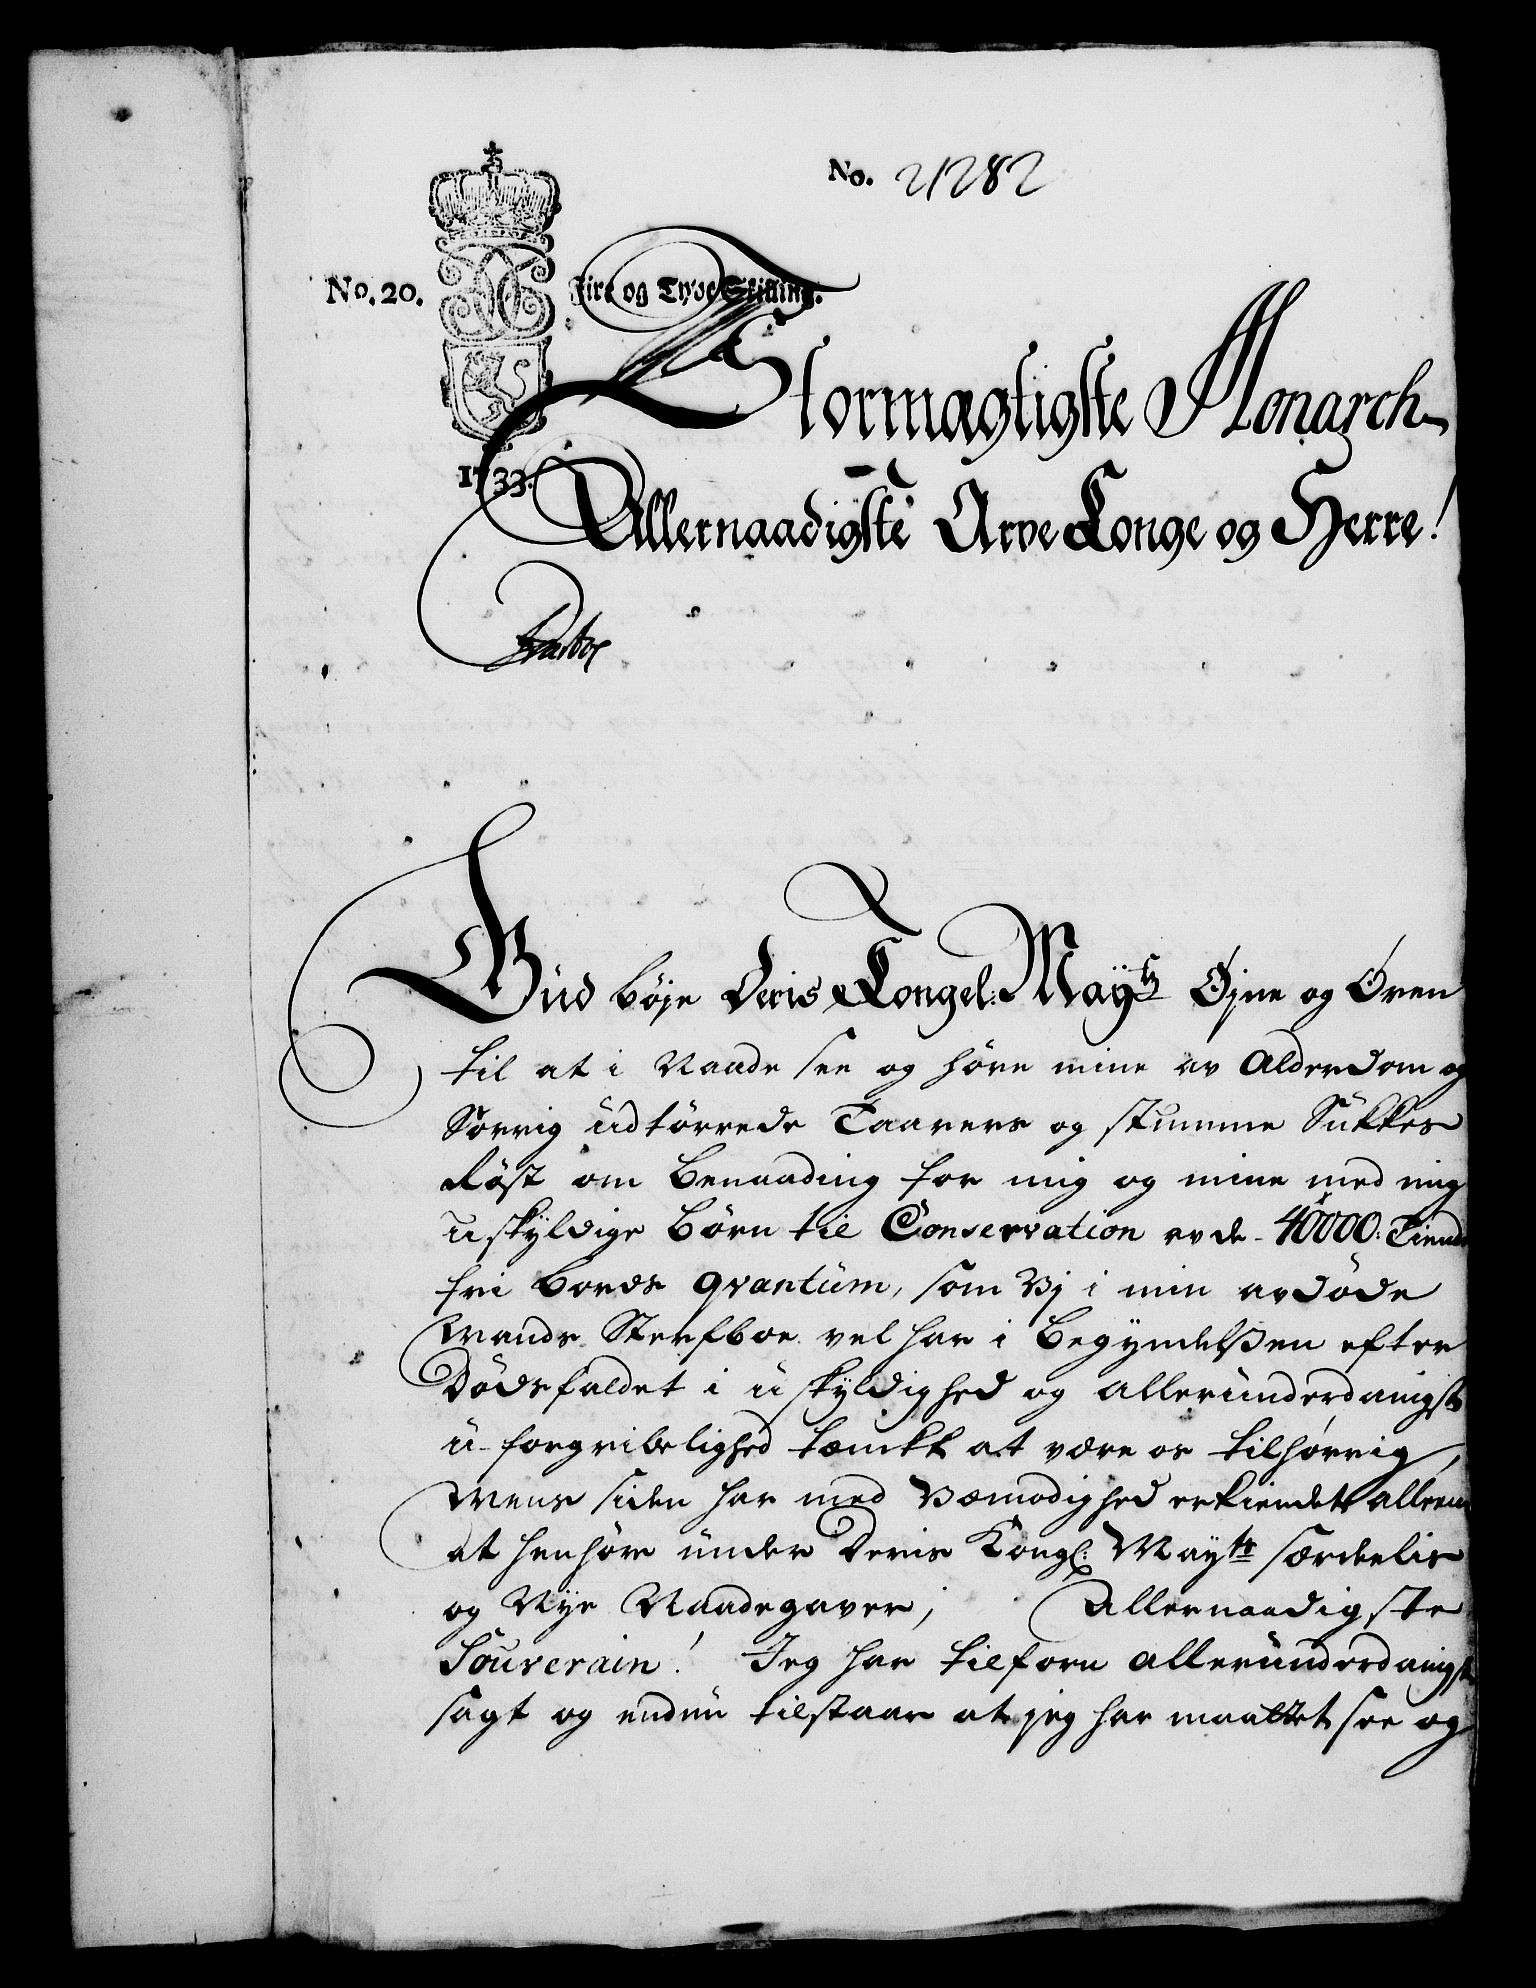 No. 21282
No. 20.
Fire og Tyve Skilling.
Stormagtigste Monarch
1733.
Allernaadigste Arve Konge og Herre!
Gud böje Deris Kongel: Mayts Øjne og Øren
til at i Naade see og höre mine av Alderdom og
Sorrig udtörrede Taarers og stumme Sukkes
Röst om Benaading for mig og mine med mig
uskyldige Börn til Conservation av de 40000: Tiende
fri Bords qvantum, som Vj i min avdöde
Mands Sterfboe vel har i Begyndelßen efter
Dödsfaldet i uskyldighed og allerunderdanigst
u-forgribelighed tænckt at være os tilhörrig,
Mens siden har med Vemodighed erkiendet alleene
at henhöre under Deris Kongl: Mayts særdeelis
og Nye Naadegaver; Allernaadigste
Souverain! Jeg har tilforn allerunderdanigst
sagt og endnu tilstaar at jeg har maattet see og